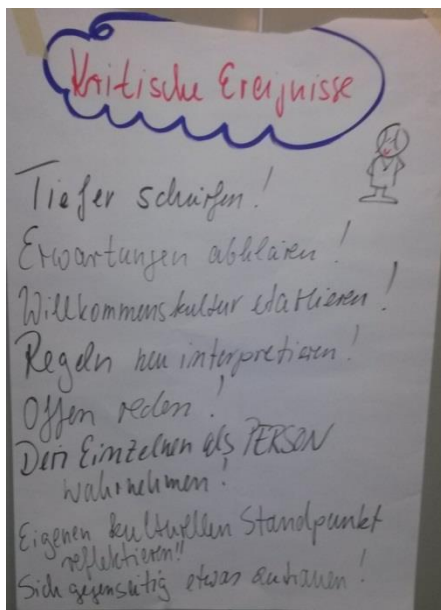 Kritische Ereignisse
Tiefer schürfen!
Erwartungen abklären!
Willkommenskultur etablieren!
Regeln neu interpretieren!
Offen reden!
Den Einzelnen als PERSON
wahrnehmen!
Eigenen kulturellen Standpunkt
reflektieren!!
Sich gegenseitig etwas zutrauen!